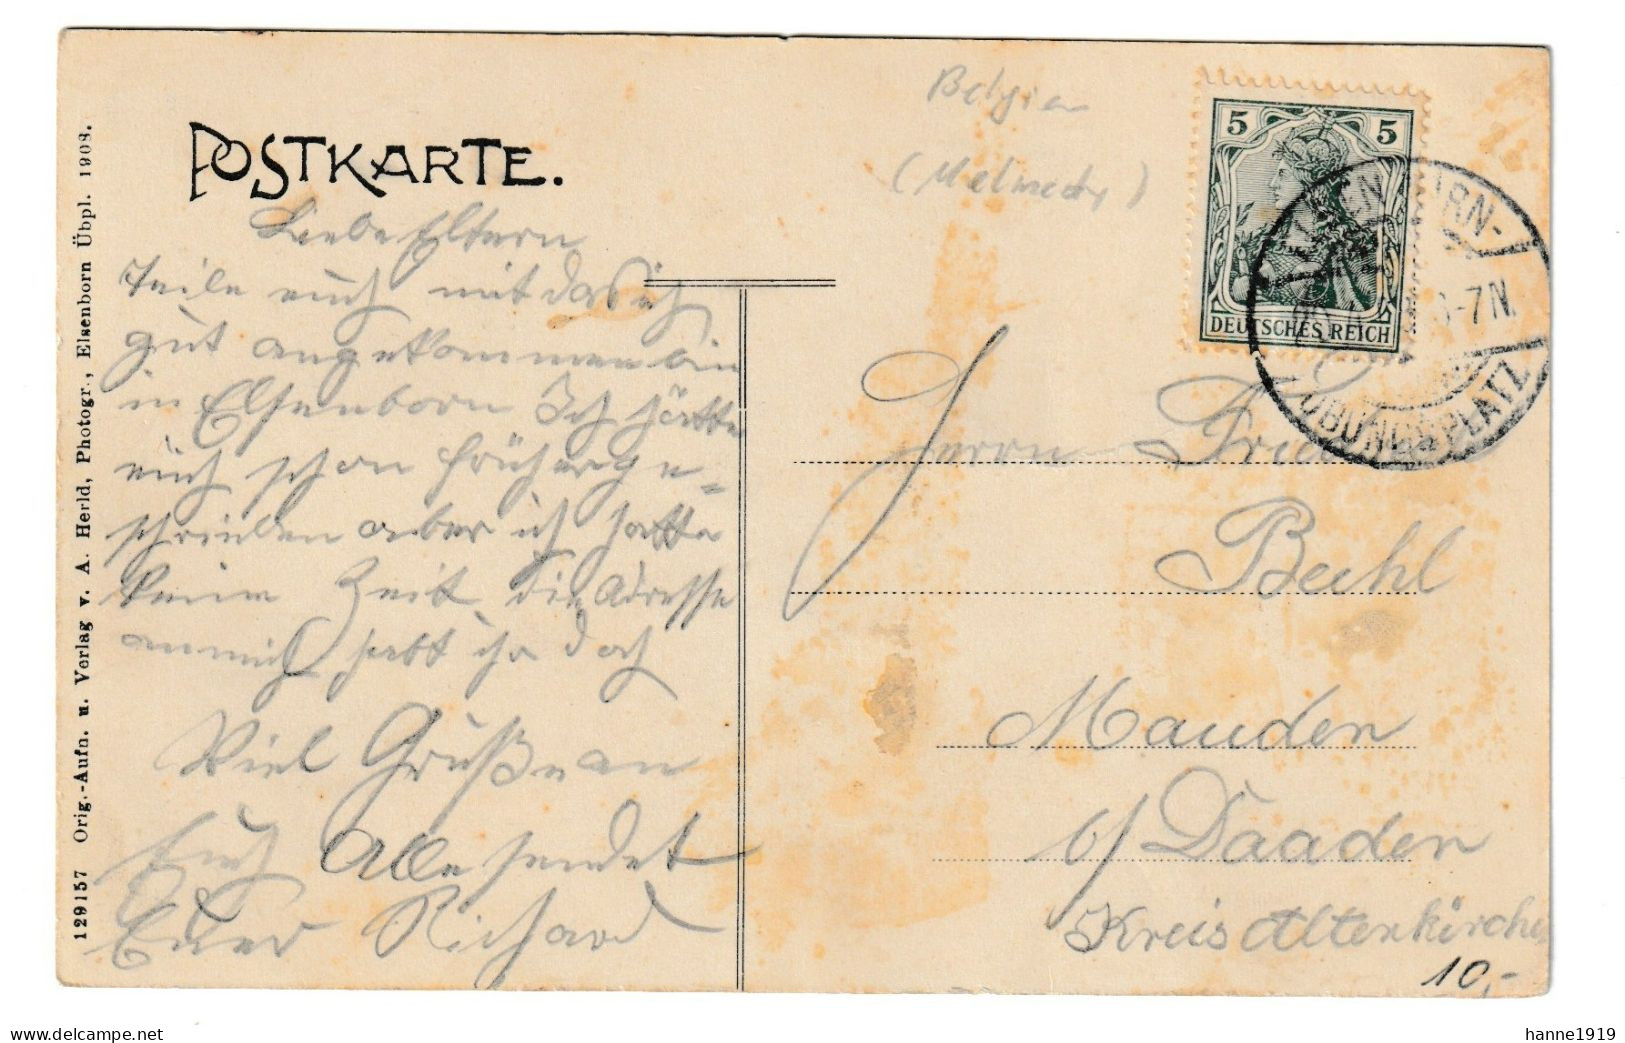 POSTKARTE.
Belgien
(Malmedy)
5 5
DEUTSCHES REICH
ELSENBORN-
6-7N.
ÜBUNGSPLATZ
Liebe Eltern
Teile euch mit das ich
gut angekommen bin
in Elsenborn Ich hätte
euch schon früher ge-
schrieben aber ich hatte
keine Zeit. die Adresse
an mich habt ihr doch
Viel Grüße an
Euch Alle sendet
Euer Richard
Herrn Friedr.
Beihl
Mauden
b/ Daaden
Kreis Altenkirchen
10,-
129157 Orig.-Aufn. u. Verlag v. A. Herld, Photogr., Elsenborn Übpl. 1908.
delcampe.net
hanne1919